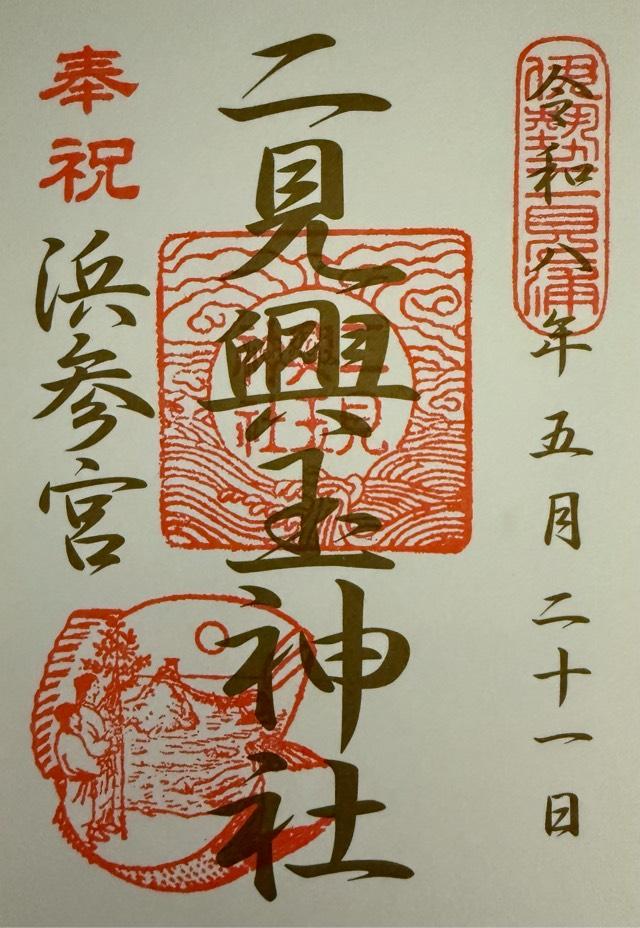 伊勢二見浦
令和八年五月二十一日
二見興玉神社
奉祝
浜参宮